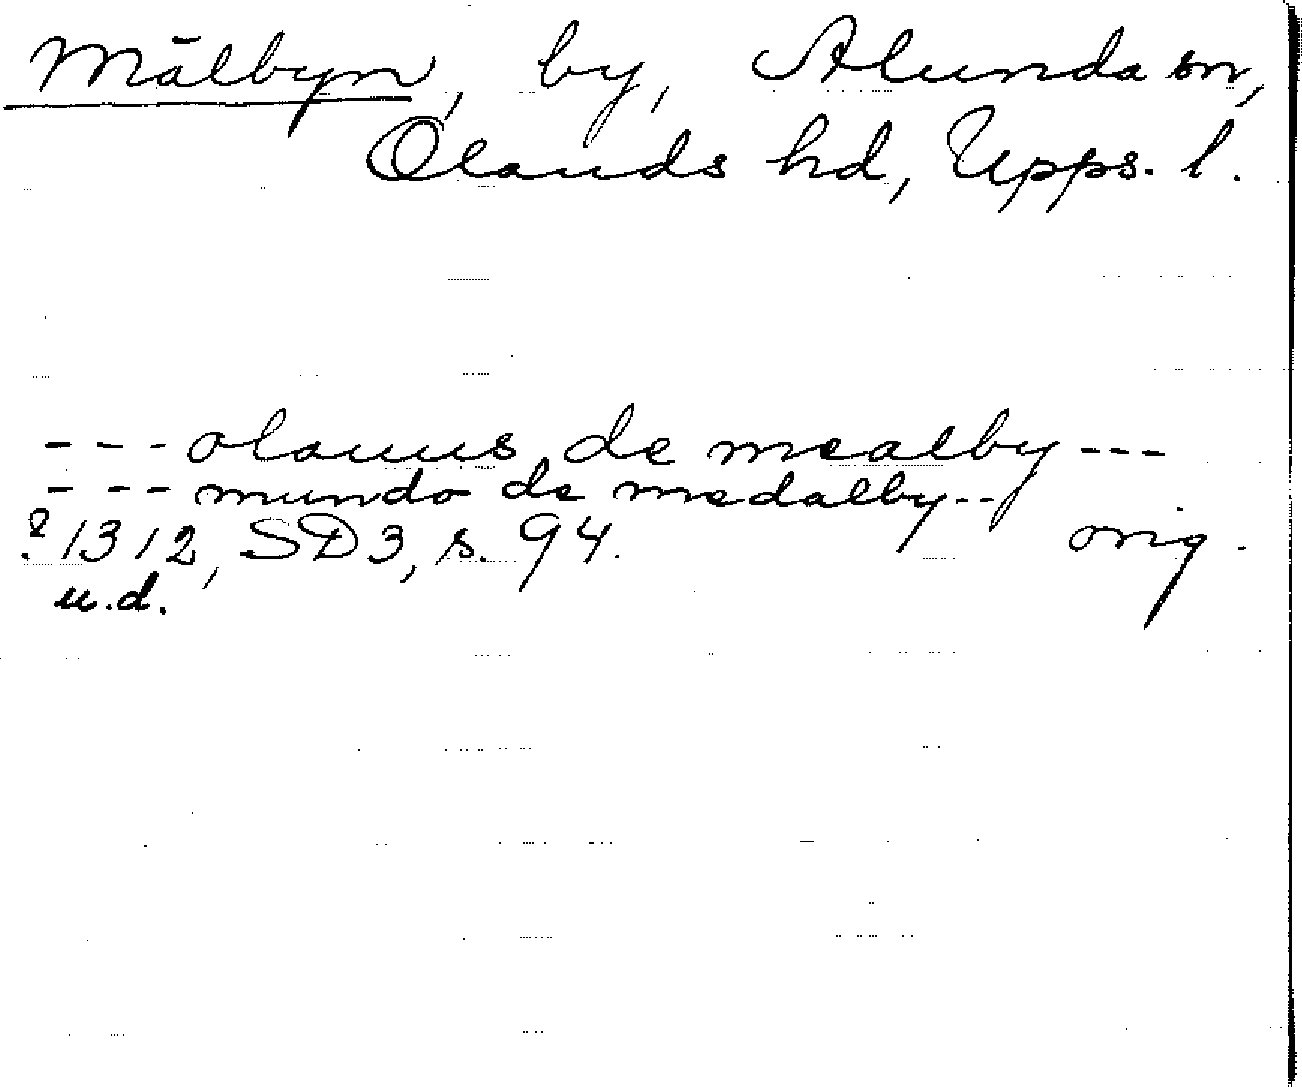 Mälbyn, by, Alunda sn,
Olands hd, Upps. l.
--- olauus de mealby ---
--- mundo de medalby --
? 1312, SD3, s. 94. orig.
u.d.